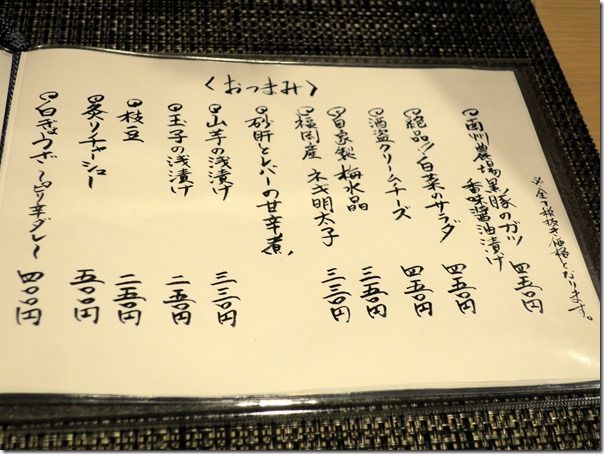 〈おつまみ〉
※全て税抜き価格となります。
南州農場黒豚のガツ
香味醤油漬け 四五〇円
絶品!白菜のサラダ 四五〇円
酒盗クリームチーズ 四五〇円
自家製梅水晶 三五〇円
福岡産ネギ明太子 三三〇円
砂肝とレバーの甘辛煮
山芋の浅漬け 三三〇円
玉子の浅漬け 二五〇円
枝豆 二五〇円
炙りチャーシュー 五〇〇円
白ぎょうざ〜ピリ辛ダレ〜 四〇〇円